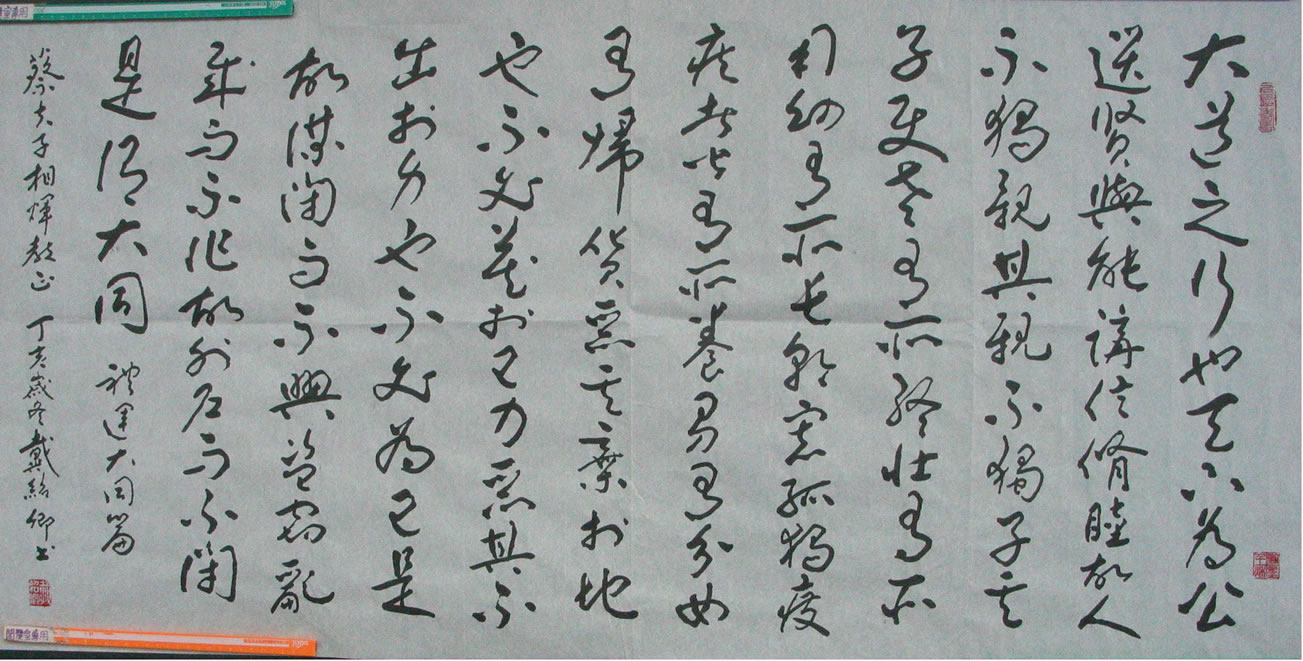 大道之行也天下為公
選賢與能講信脩睦故人
不獨親其親不獨子其
子使老有所終壯有所
用幼有所長矜寡孤獨廢
疾者皆有所養男有分女
有歸貨惡其棄於地
也不必藏於己力惡其不
出於身也不必為己是
故謀閉而不興盜竊亂
賊而不作故外戶而不閉
是謂大同 禮運大同篇
蔡夫子相煇教正 丁亥歲冬戴紹卿書